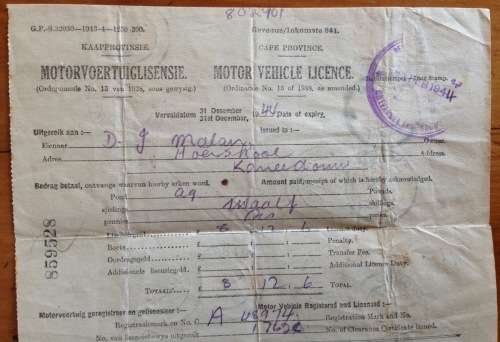 802901
G.P.-S.32050—1943-4—1250-200.
Revenue/Inkomste 841.
KAAPPROVINSIE.
CAPE PROVINCE.
MOTORVOERTUIGLISENSIE.
MOTOR VEHICLE LICENCE.
(Ordonnansie No. 15 van 1938, soos gewysig.)
(Ordinance No. 15 of 1938, as amended.)
Date Stamp.
1944
Vervaldatum 31 Desember 31st December, 1944 Date of expiry.
Uitgereik aan:— Issued to:—
Eienaar D J Malan Owner.
Adres Hoerskool Address.
Bedrag betaal, ontvangs waarvan hierby erken word. Amount paid, receipt of which is hereby acknowledged.
Pond ag Pounds.
sjielings twaalf shillings.
pennies ses
£ 8 12 6
Boete £ Penalty.
Dordragsgeld £ Transfer Fee.
Addisionele lisensiegeld £ Additional Licence Duty.
TOTAAL £ 8 12. 6 TOTAL.
Motorvoertuig geregistreer en gelisensieer: Motor Vehicle Registered and Licensed:
Registrasiemerk en No. A 48974. Registration Mark and No.
No. of Clearance Certificate issued.
859528